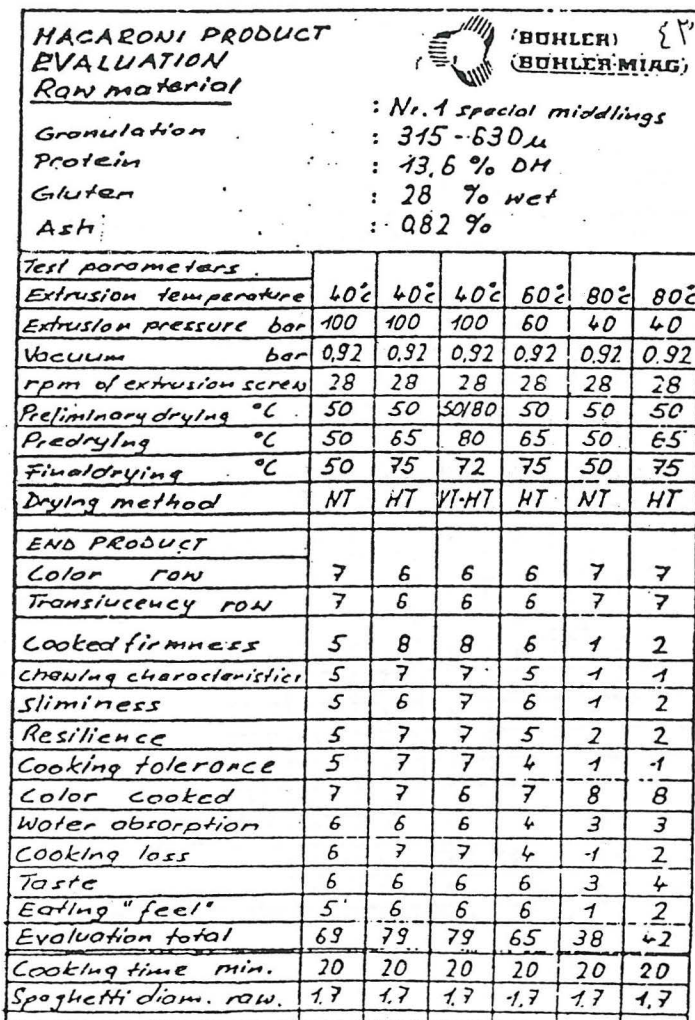 MACARONI PRODUCT
(BÜHLER) ٤٣
EVALUATION
(BÜHLER-MIAG)
Raw material
: Nr. 1 special middlings
Granulation : 315-630µ
Protein : 13,6 % DM
Gluten : 28 % wet
Ash : 0,82 %
Test parameters
Extrusion temperature 40°C 40°C 40°C 60°C 80°C 80°C
Extrusion pressure bar 100 100 100 60 40 40
Vacuum bar 0,92 0,92 0,92 0.92 0.92 0.92
rpm of extrusion screw 28 28 28 28 28 28
Preliminary drying °C 50 50 50/80 50 50 50
Predrying °C 50 65 80 65 50 65
Finaldrying °C 50 75 72 75 50 75
Drying method NT HT VT-HT HT NT HT
END PRODUCT
Color raw 7 6 6 6 7 7
Translucency raw 7 6 6 6 7 7
Cooked firmness 5 8 8 6 1 2
Chewing characteristics 5 7 7 5 1 1
Sliminess 5 6 7 6 1 2
Resilience 5 7 7 5 2 2
Cooking tolerance 5 7 7 4 1 1
Color cooked 7 7 6 7 8 8
Water absorption 6 6 6 4 3 3
Cooking loss 6 7 7 4 1 2
Taste 6 6 6 6 3 4
Eating "feel" 5 6 6 6 1 2
Evaluation total 69 79 79 65 38 42
Cooking time min. 20 20 20 20 20 20
Spaghetti diam. raw. 1,7 1,7 1,7 1,7 1,7 1,7